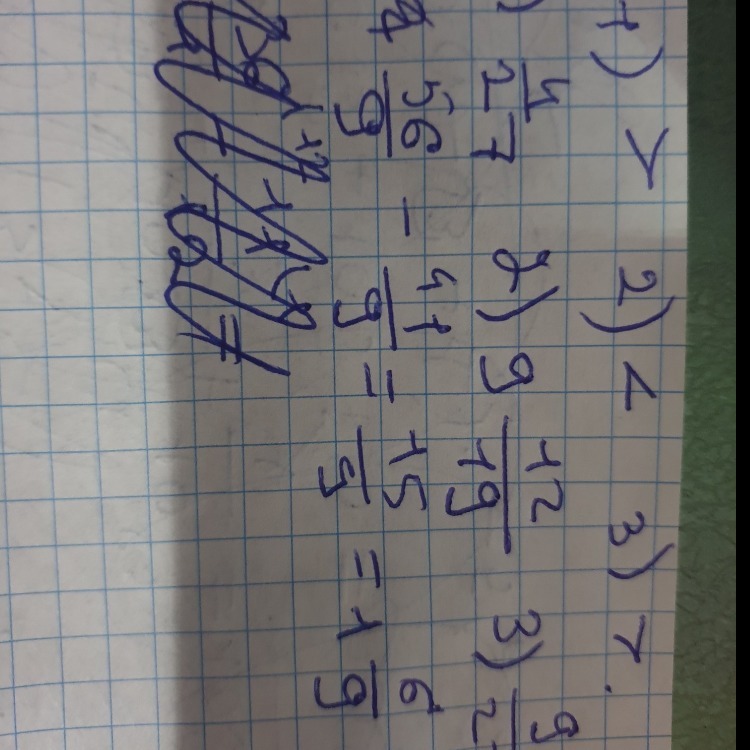 1) > 2) < 3) >.
) 4/27 2) 9 12/19 3) 9/2
56/9 - 41/9 = 15/9 = 1 6/9